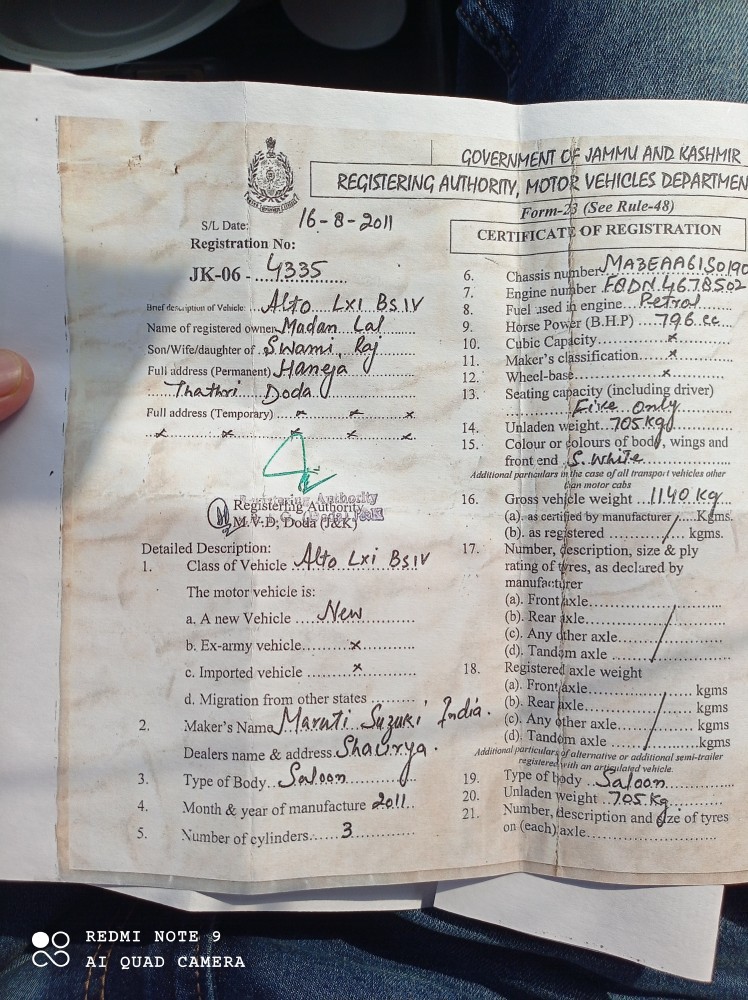 GOVERNMENT OF JAMMU AND KASHMIR
REGISTERING AUTHORITY, MOTOR VEHICLES DEPARTMEN
Form-23 (See Rule-48)
CERTIFICATE OF REGISTRATION
S/L Date: 16-8-2011
Registration No:
JK-06 - 4335
Brief description of Vehicle: Alto Lxi BSIV
Name of registered owner Madan Lal
Son/Wife/daughter of Swami Raj
Full address (Permanent) Haneja
Thathri Doda
Full address (Temporary) x x x
x x x x x
Registering Authority
Registering Authority
M.V.D, Doda (J&K)
Detailed Description:
1. Class of Vehicle Alto Lxi BSIV
The motor vehicle is:
a. A new Vehicle New
b. Ex-army vehicle x
c. Imported vehicle x
d. Migration from other states
2. Maker's Name Maruti Suzuki India.
Dealers name & address Shaurya.
3. Type of Body Saloon
4. Month & year of manufacture 2011
5. Number of cylinders 3
6. Chassis number MA3EAA61S0190
7. Engine number F8DN4678502
8. Fuel used in engine Petrol
9. Horse Power (B.H.P) 796 cc
10. Cubic Capacity x
11. Maker's classification x
12. Wheel-base x
13. Seating capacity (including driver)
Five only
14. Unladen weight 705 Kg
15. Colour or colours of body, wings and
front end S. White
Additional particulars in the case of all transport vehicles other
than motor cabs
16. Gross vehicle weight 1140 Kg
(a). as certified by manufacturer / Kgms.
(b). as registered / kgms.
17. Number, description, size & ply
rating of tyres, as declared by
manufacturer
(a). Front axle
(b). Rear axle
(c). Any other axle
(d). Tandam axle
18. Registered axle weight
(a). Front axle kgms
(b). Rear axle kgms
(c). Any other axle kgms
(d). Tandom axle kgms
Additional particulars of alternative or additional semi-trailer
registered with an articulated vehicle.
19. Type of body Saloon
20. Unladen weight 705 Kg
21. Number, description and size of tyres
on (each) axle
REDMI NOTE 9
AI QUAD CAMERA